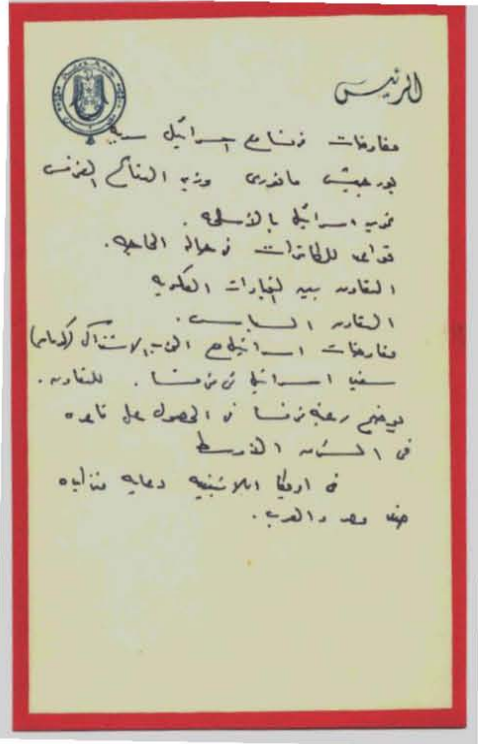 الرئيس
مفاوضات فرنسا مع اسرائيل سريه
بورجيس مانوري وزير الدفاع الفرنسى
تزويد اسرائيل بالأسلحه.
قواعد للطائرات فى حالة الحاجه.
التعاون بين المخابرات العسكريه
التعاون السياسى.
مفاوضات اسرائيل مع الاشتراكى
سفير اسرائيل فى فرنسا. للتعاون.
يوضح رغبة فرنسا فى الحصول على قاعده
فى الشرق الأوسط
فى امريكا اللاتينيه دعايه
ضد مصر والعرب.